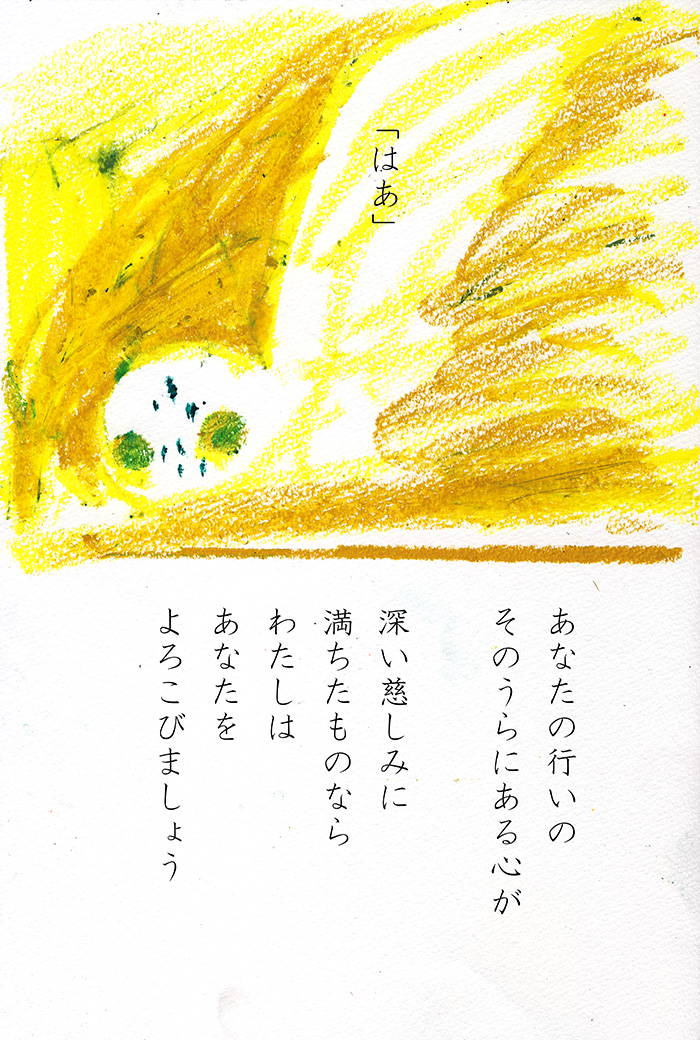 「はあ」
あなたの行いの
そのうらにある心が
深い慈しみに
満ちたものなら
わたしは
あなたを
よろこびましょう